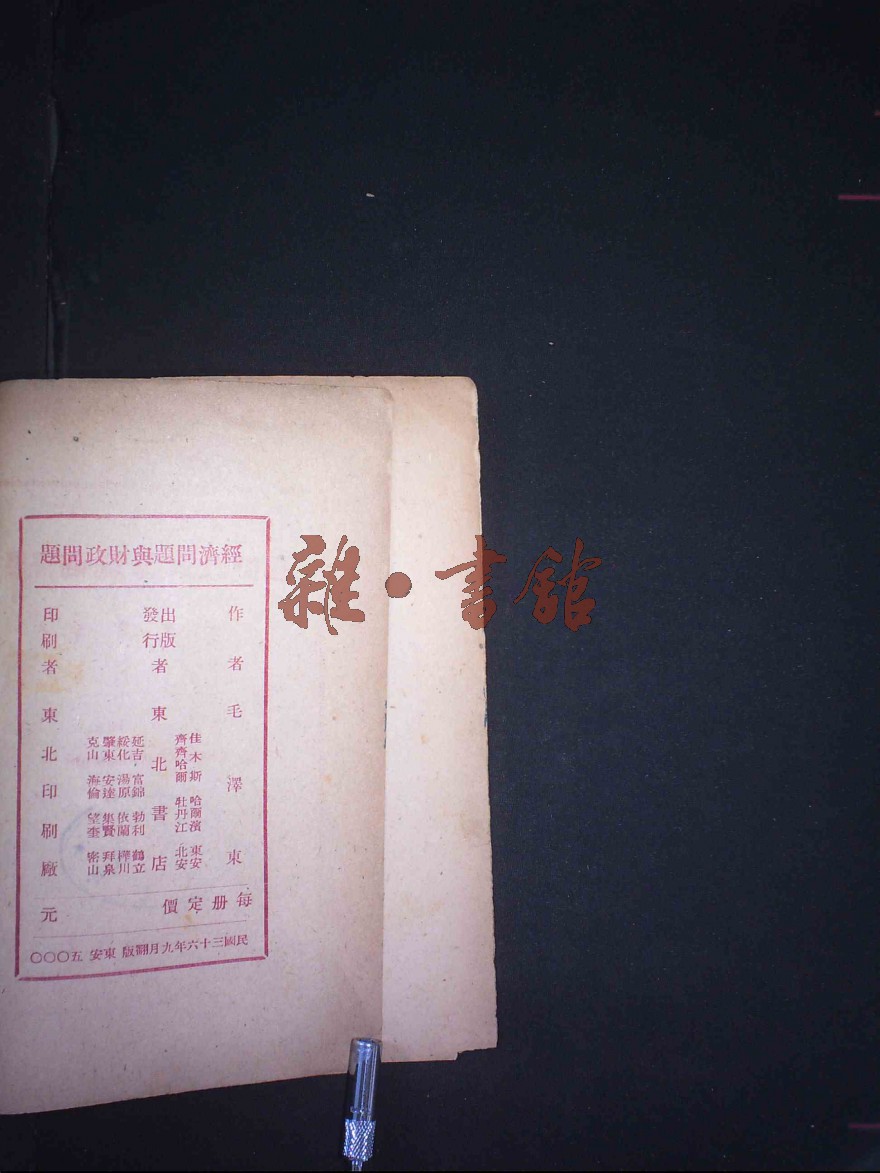 經濟問題與財政問題
作者 毛澤東
出版發行者 東北書店
佳木斯 哈爾濱 東安
齊齊哈爾 牡丹江 北安
延吉 富錦 勃利 鶴立
綏化 湯原 依蘭 樺川
肇東 安達 集賢 拜泉
克山 海倫 望奎 密山
印刷者 東北印刷廠
每册定價 元
民國三十六年九月翻版 東安 五〇〇〇
雜·書館